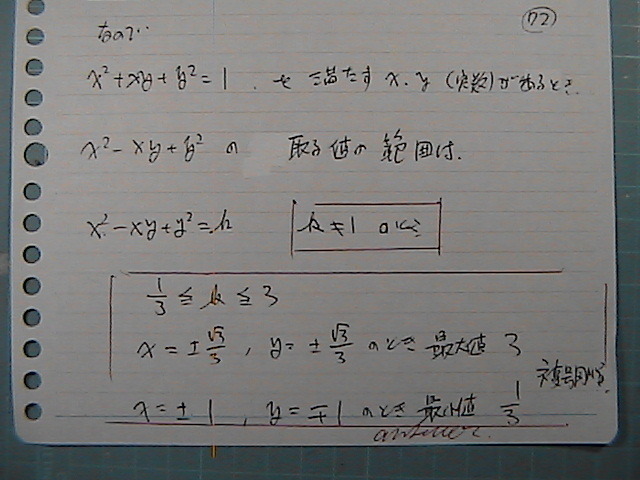 (72)
なので…
x²+xy+y²=1 を満たす x.y (実数)があるとき.
x²-xy+y² の 取る値の範囲は.
x²-xy+y²=k k≠1 のとき
1/3 ≦ k ≦ 3
x=±√3/3 , y=±√3/3 のとき 最大値 3
複号同順
x=±1 , y=∓1 のとき 最小値 1/3
answer.